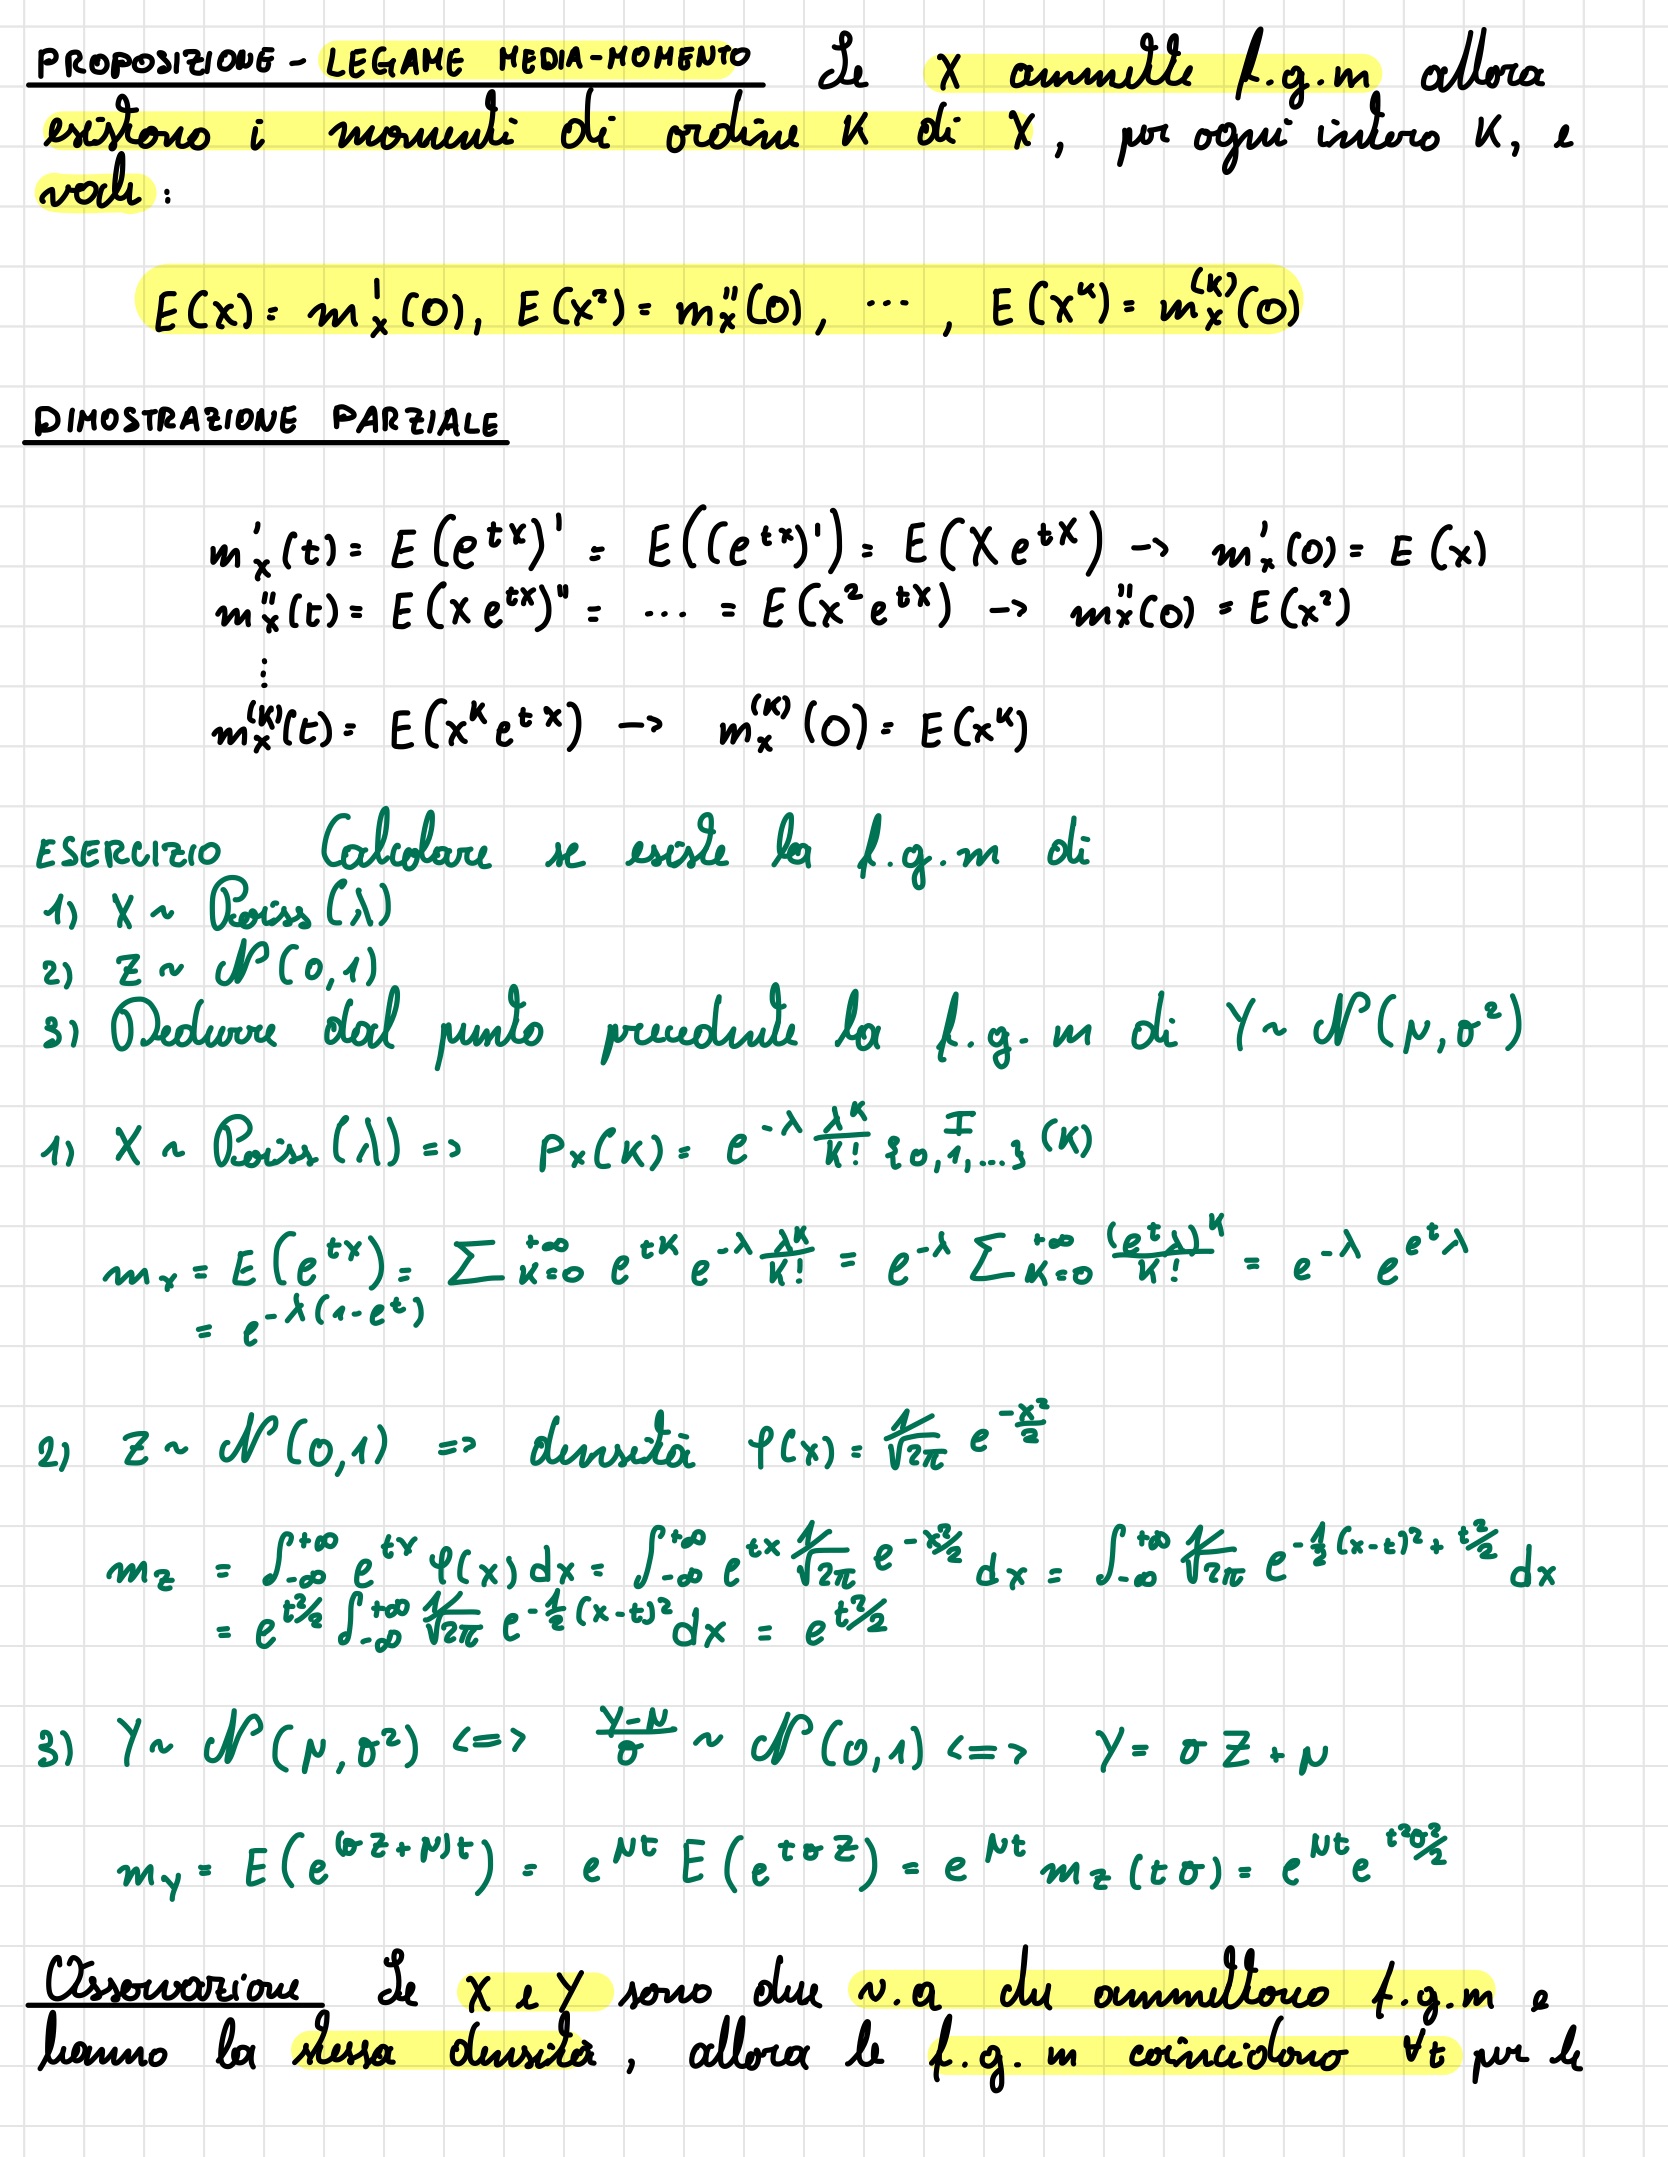 PROPOSIZIONE - LEGAME MEDIA-MOMENTO Se X ammette f.g.m allora
esistono i momenti di ordine K di X, per ogni intero K, e
vale:
E(x) = m'_x(0), E(x²) = m''_x(0), ... , E(x^K) = m_x^(K)(0)
DIMOSTRAZIONE PARZIALE
m'_x(t) = E(e^{tx})' = E((e^{tx})') = E(X e^{tX}) -> m'_x(0) = E(x)
m''_x(t) = E(X e^{tX})'' = ... = E(x² e^{tX}) -> m''_x(0) = E(x²)
⋮
m_x^(K)(t) = E(x^K e^{tx}) -> m_x^(K)(0) = E(x^K)
ESERCIZIO Calcolare se esiste la f.g.m di
1) X ~ Poiss(λ)
2) Z ~ N(0,1)
3) Dedurre dal punto precedente la f.g.m di Y ~ N(μ, σ²)
1) X ~ Poiss(λ) => P_X(K) = e^{-λ} λ^K/K! I_{0,1,...}(K)
m_x = E(e^{tx}) = ∑_{K=0}^{+∞} e^{tK} e^{-λ} λ^K/K! = e^{-λ} ∑_{K=0}^{+∞} (e^t λ)^K/K! = e^{-λ} e^{e^t λ}
= e^{-λ(1-e^t)}
2) Z ~ N(0,1) => densità φ(x) = 1/√2π e^{-x²/2}
m_z = ∫_{-∞}^{+∞} e^{tx} φ(x) dx = ∫_{-∞}^{+∞} e^{tx} 1/√2π e^{-x²/2} dx = ∫_{-∞}^{+∞} 1/√2π e^{-1/2 (x-t)² + t²/2} dx
= e^{t²/2} ∫_{-∞}^{+∞} 1/√2π e^{-1/2 (x-t)²} dx = e^{t²/2}
3) Y ~ N(μ, σ²) <=> (Y-μ)/σ ~ N(0,1) <=> Y = σZ + μ
m_y = E(e^{(σZ+μ)t}) = e^{μt} E(e^{tσZ}) = e^{μt} m_z(tσ) = e^{μt} e^{t²σ²/2}
Osservazione Se X e Y sono due v.a che ammettono f.g.m e
hanno la stessa densità, allora le f.g.m coincidono ∀t per le